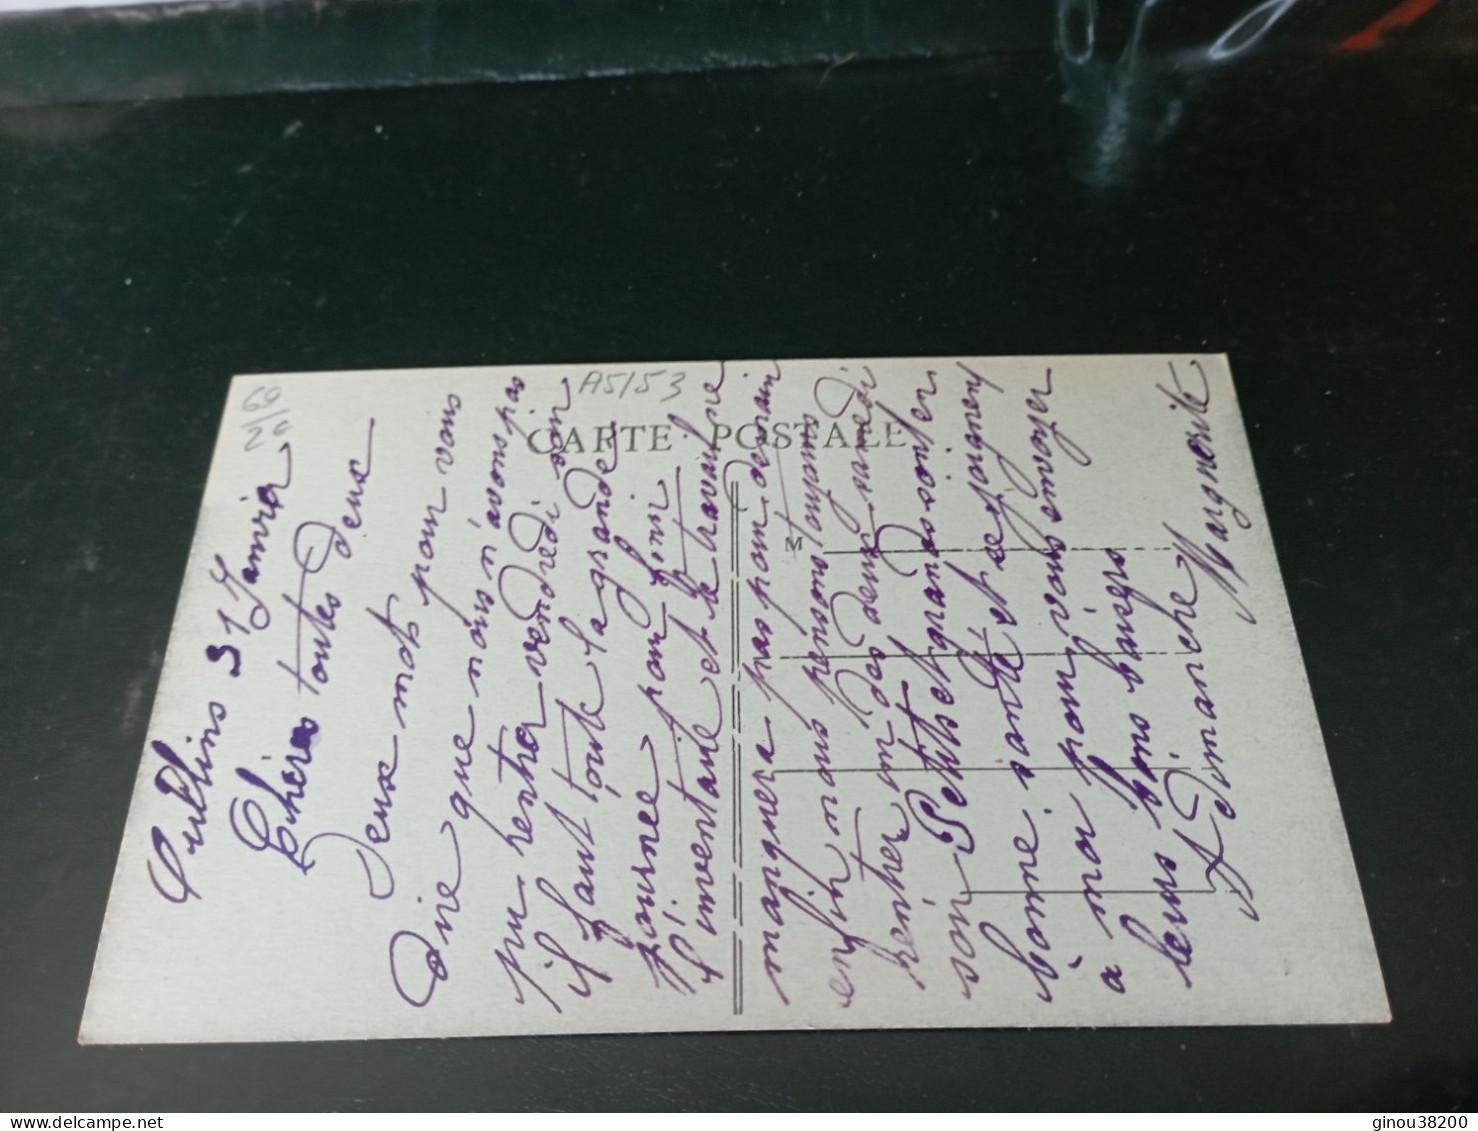 Oullins 31 Janvier
Chères toutes deux
Deux mots pour vous
dire que nous n'avons pas
pu rentrer vendredi soir
il faut toute la grande
journée pour finir
l'inventaire et le travail ne
manquera pas pour demain
enfin nous pensons toujours
rentrer midi samedi
soir Petits et grands sont en
bonne santé et se joignent
à moi pour vous envoyer
leurs bons baisers
A Dimanche Marguerite
CARTE POSTALE
M
A5153
69
26
ginou38200